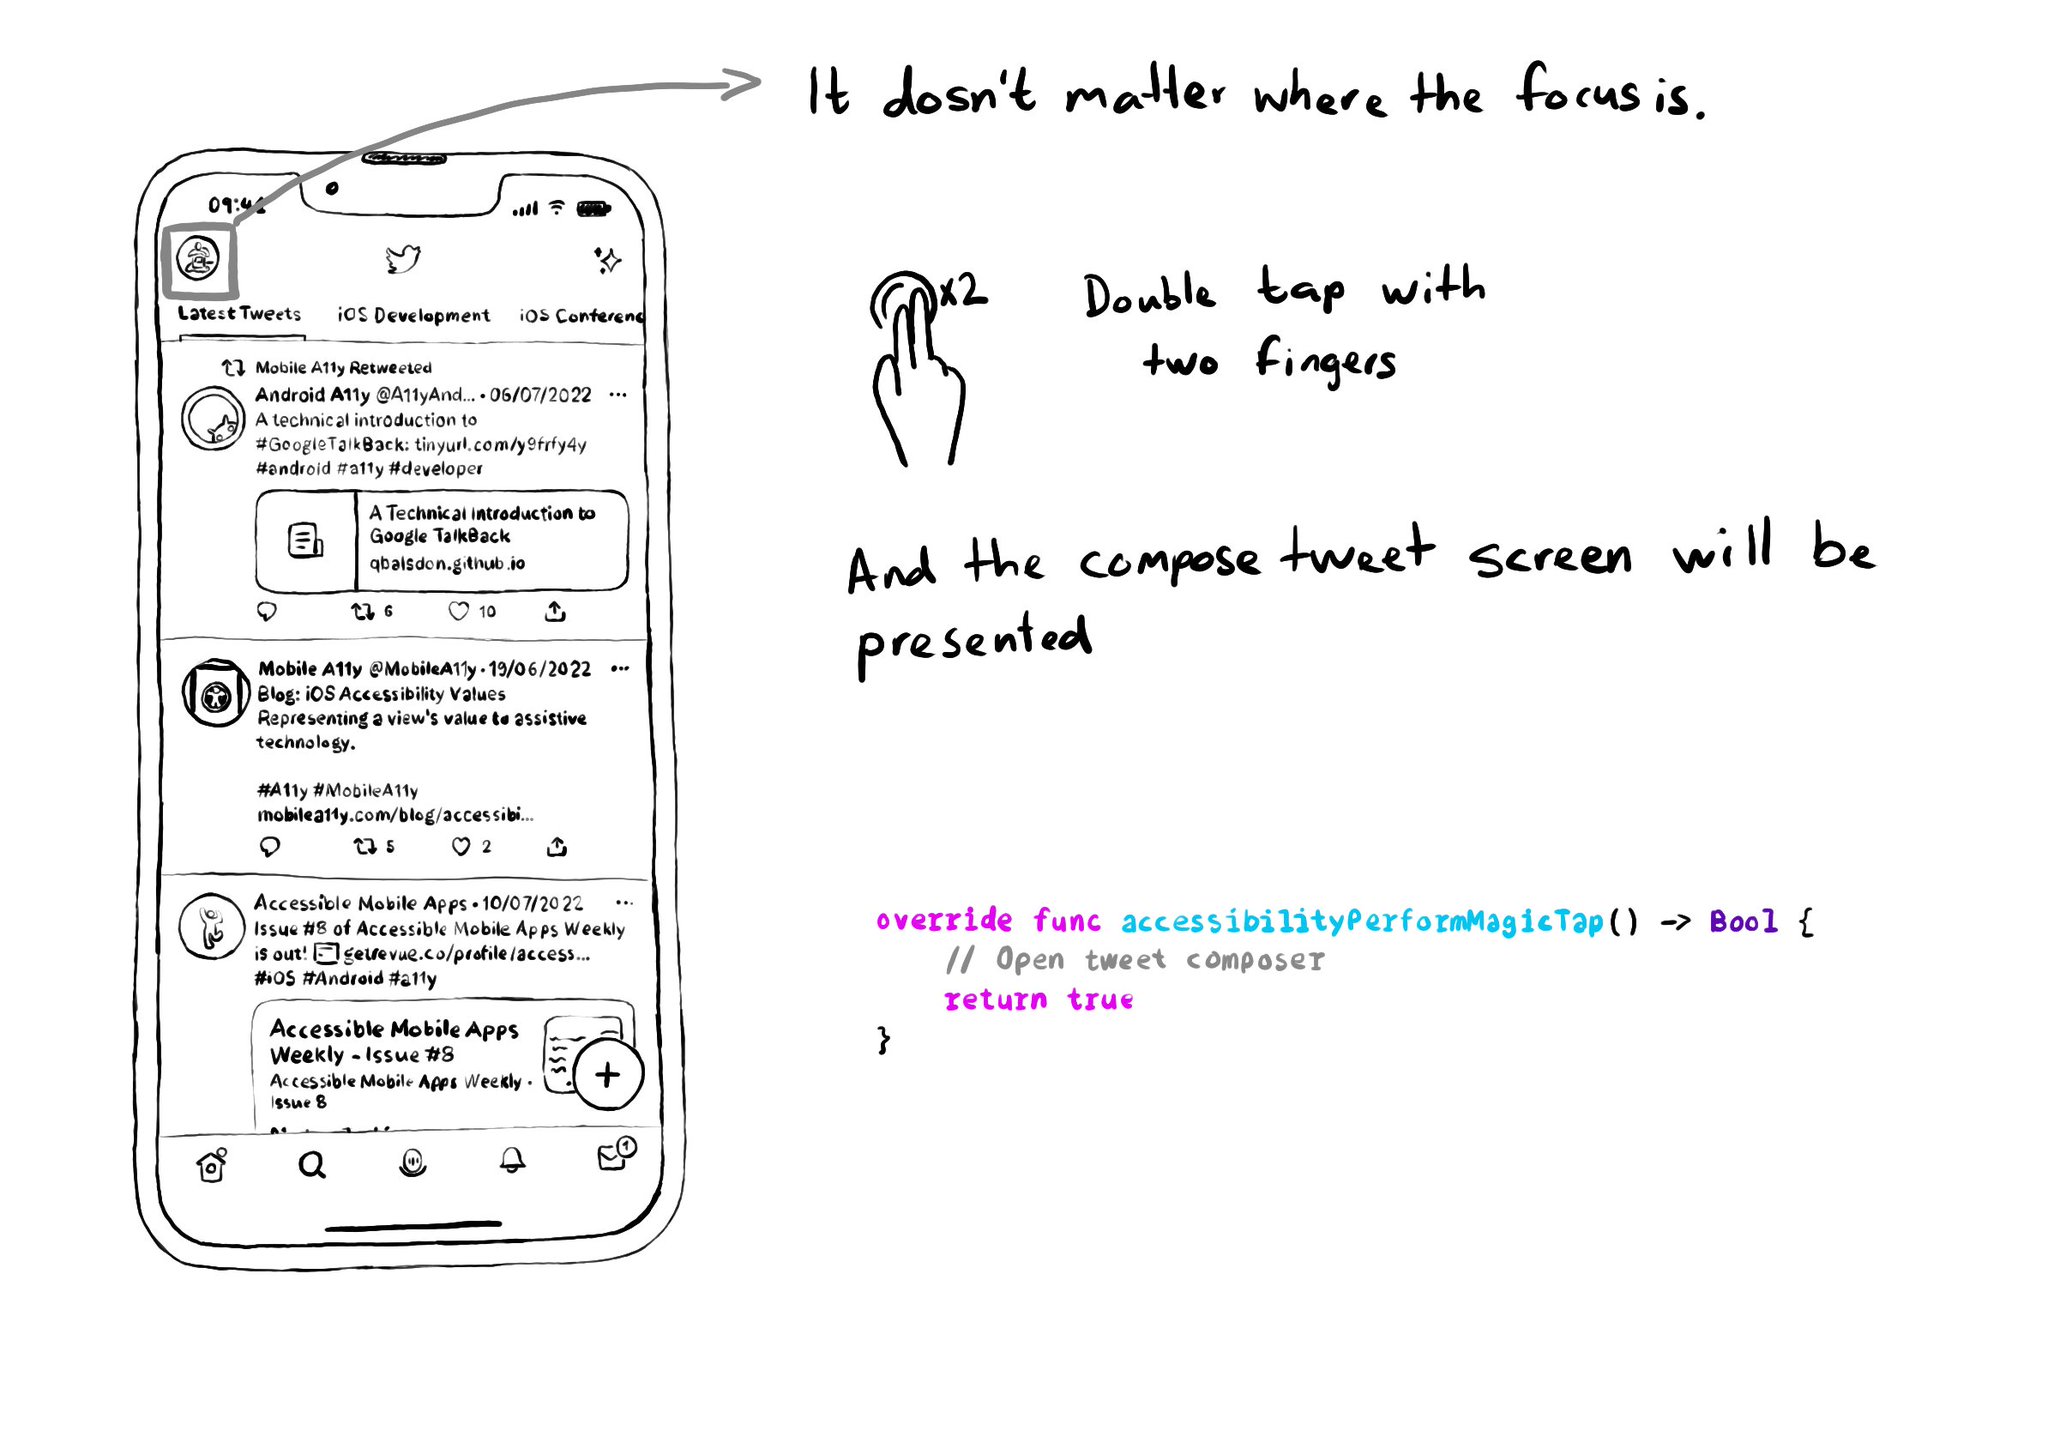 It dosn't matter where the focus is.
09:41
Latest Tweets iOS Development iOS Conferenc
Mobile A11y Retweeted
Android A11y @A11yAnd... · 06/07/2022 ...
A technical introduction to
#GoogleTalkBack: tinyurl.com/y9frfy4y
#android #a11y #developer
A Technical introduction to
Google TalkBack
qbalsdon.github.io
6 10
Mobile A11y @MobileA11y · 19/06/2022 ...
Blog: iOS Accessibility Values
Representing a view's value to assistive
technology.
#A11y #MobileA11y
mobilea11y.com/blog/accessibi...
5 2
Accessible Mobile Apps · 10/07/2022 ...
Issue #8 of Accessible Mobile Apps Weekly
is out! getrevue.co/profile/access...
#iOS #Android #a11y
Accessible Mobile Apps
Weekly - Issue #8
Accessible Mobile Apps Weekly ·
Issue 8
+
1
x2
Double tap with
two fingers
And the compose tweet screen will be
presented
override func accessibilityPerformMagicTap() -> Bool {
// Open tweet composer
return true
}